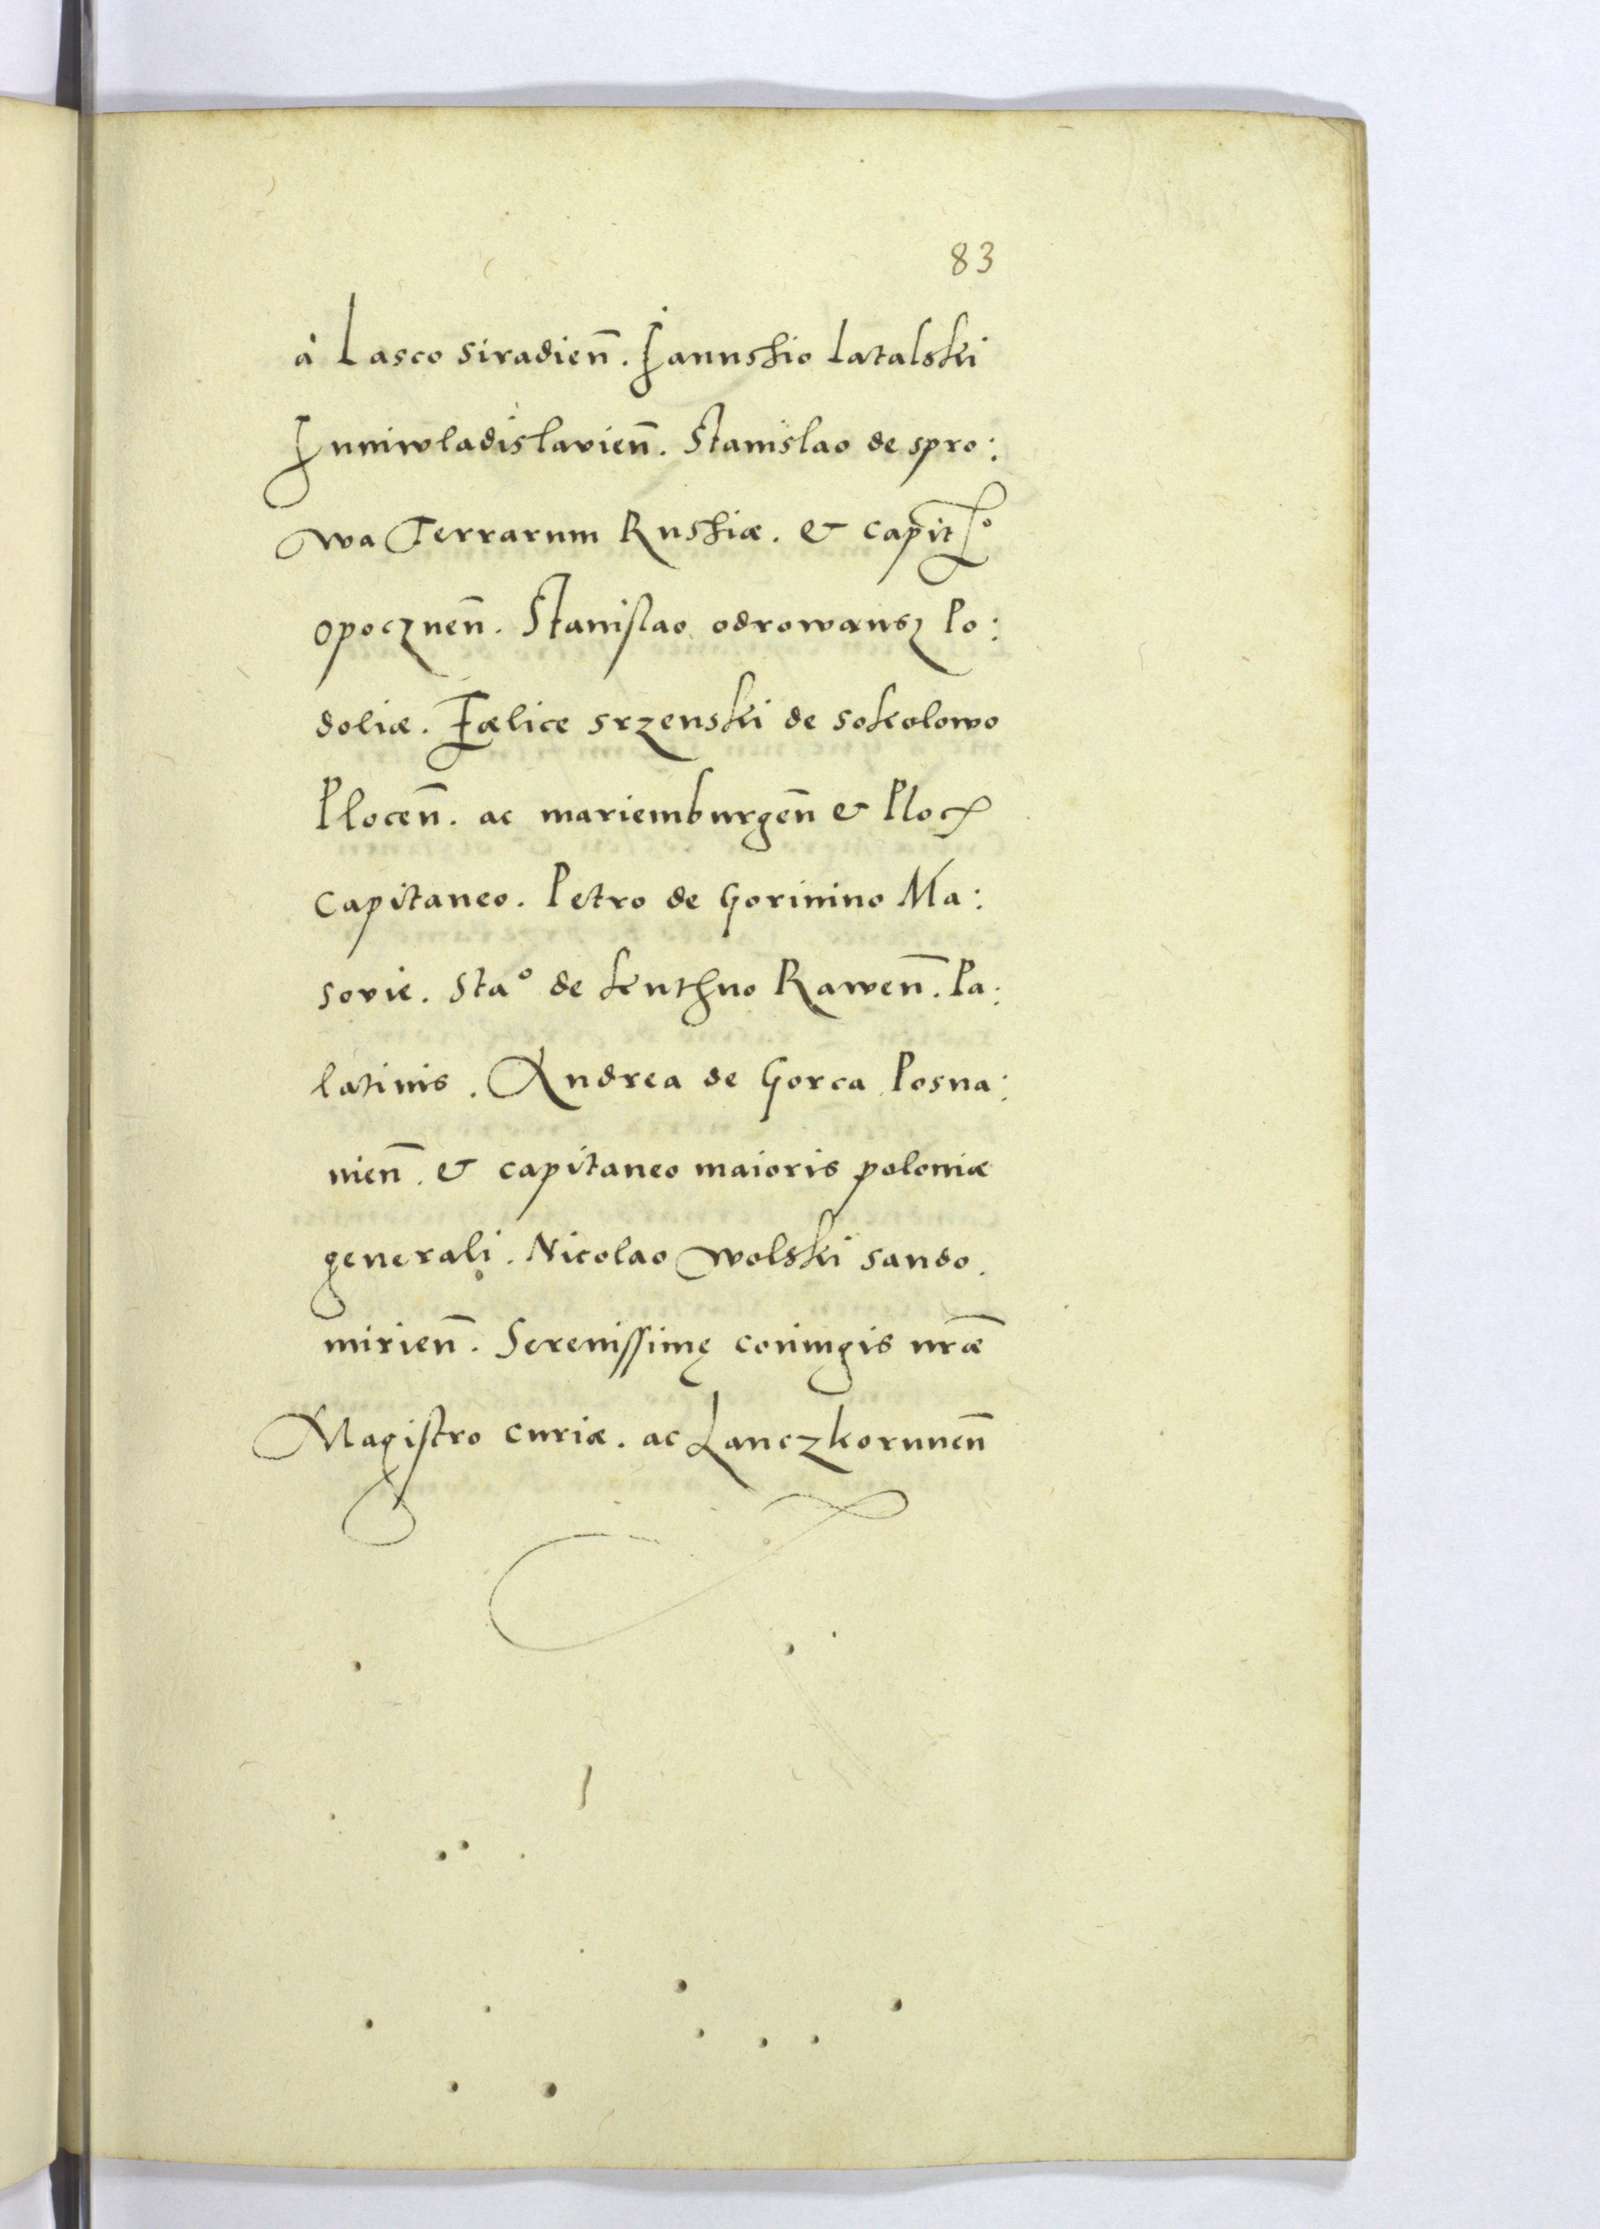 83
à Lasco siradieñ. Ianushio latalski
Iuniwladislavieñ. Stanislao de spro:
wa Terrarum Rushiæ. & capit̃o
opoczneñ. Stanislao odrowansz Po:
doliæ. Fælice srzenski de sokolowo
Płoceñ. ac mariemburgeñ & Ploc̃
Capitaneo. Petro de Gorinino Ma:
sovie. Sta° de kuthno Raweñ. Pa:
latinis. Andrea de Gorca Posna:
nieñ. & capitaneo maioris poloniæ
generali. Nicolao wolski sando.
mirieñ. Serenissimę coniugis nr̃æ
Magistro curiæ. ac Lanczkoruneñ